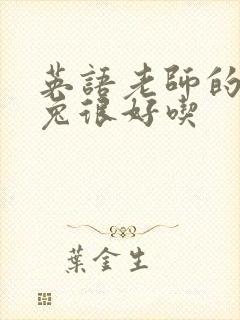 英語老師的
兔很好喫
葉金生